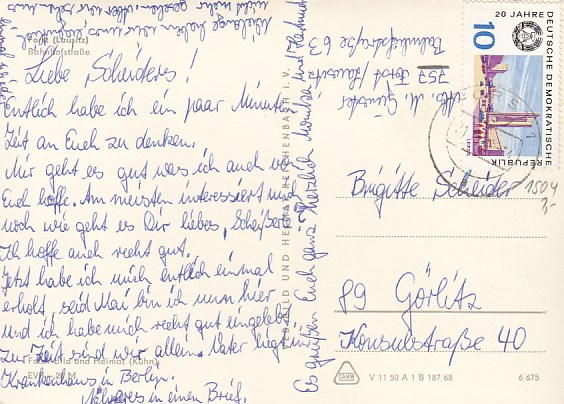 Forst (Lausitz)
Bahnhofstraße
Liebe Scheideres!
Entlich habe ich ein paar Minuten
Zeit an Euch zu denken.
Mir geht es gut was ich auch von
Euch hoffe. Am meisten interessiert mich
noch wie geht es Dir liebes,
Ich hoffe auch recht gut.
Jetzt habe ich mich entlich einmal
erholt, seid Mai bin ich nun hier
und ich habe mich recht gut eingelebt.
Zur Zeit sind wir allein. Vater liegt im
Krankenhaus in Berlin.
Näheres in einen Brief.
Es grüßen Euch ganz herzlich Monika und
Foto: Bild und Heimat (Kühn)
EVP 20 M
VEB BILD UND HEIMAT REICHENBACH I. V.
Abs. M. Günther
757 Forst/Lausitz
Bahnhofstraße 63
20 JAHRE DEUTSCHE DEMOKRATISCHE REPUBLIK
10
LEIPZIG
Brigitte Scheider
1504
3,-
89 Görlitz
Konsulstraße 40
V 11 50 A 1 B 187/68
6/675